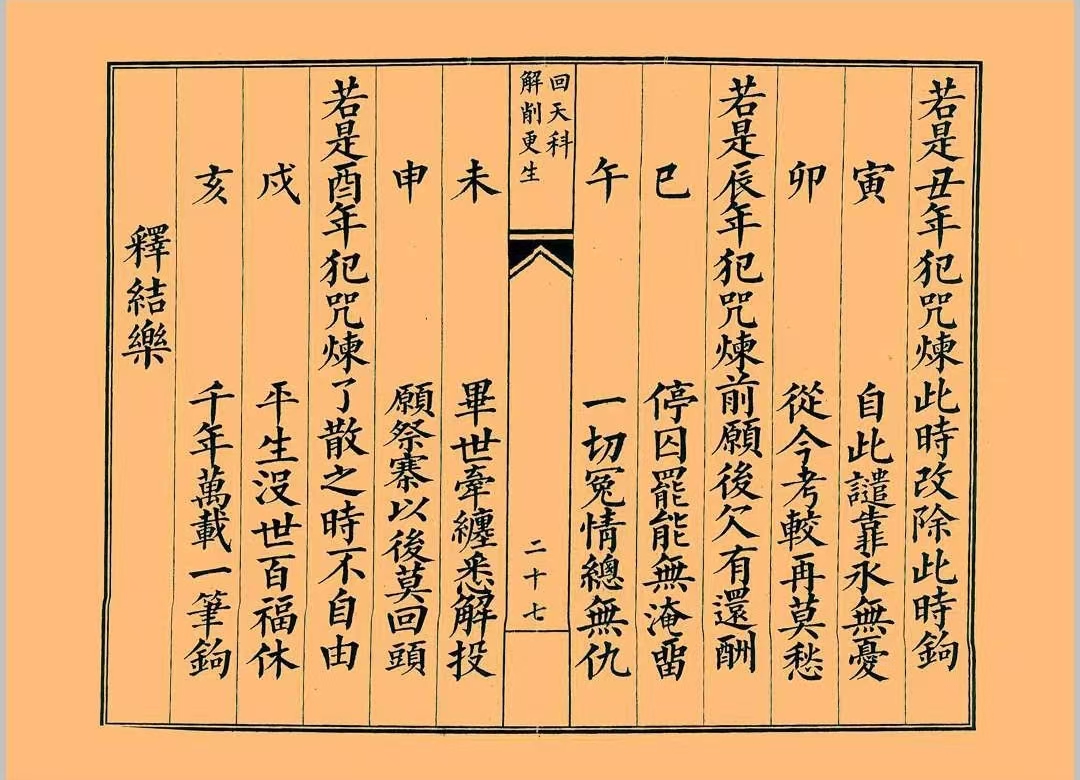 若是丑年犯咒煉此時改除此時鉤
寅 自此譴靠永無憂
卯 從今考較再莫愁
若是辰年犯咒煉前願後欠有還酬
巳 停囚罷能無淹畱
午 一切冤情總無仇
回天科
解削更生
二十七
未 畢世牽纏悉解投
申 願祭寨以後莫回頭
若是酉年犯咒煉了散之時不自由
戍 平生沒世百福休
亥 千年萬載一筆鉤
釋結樂